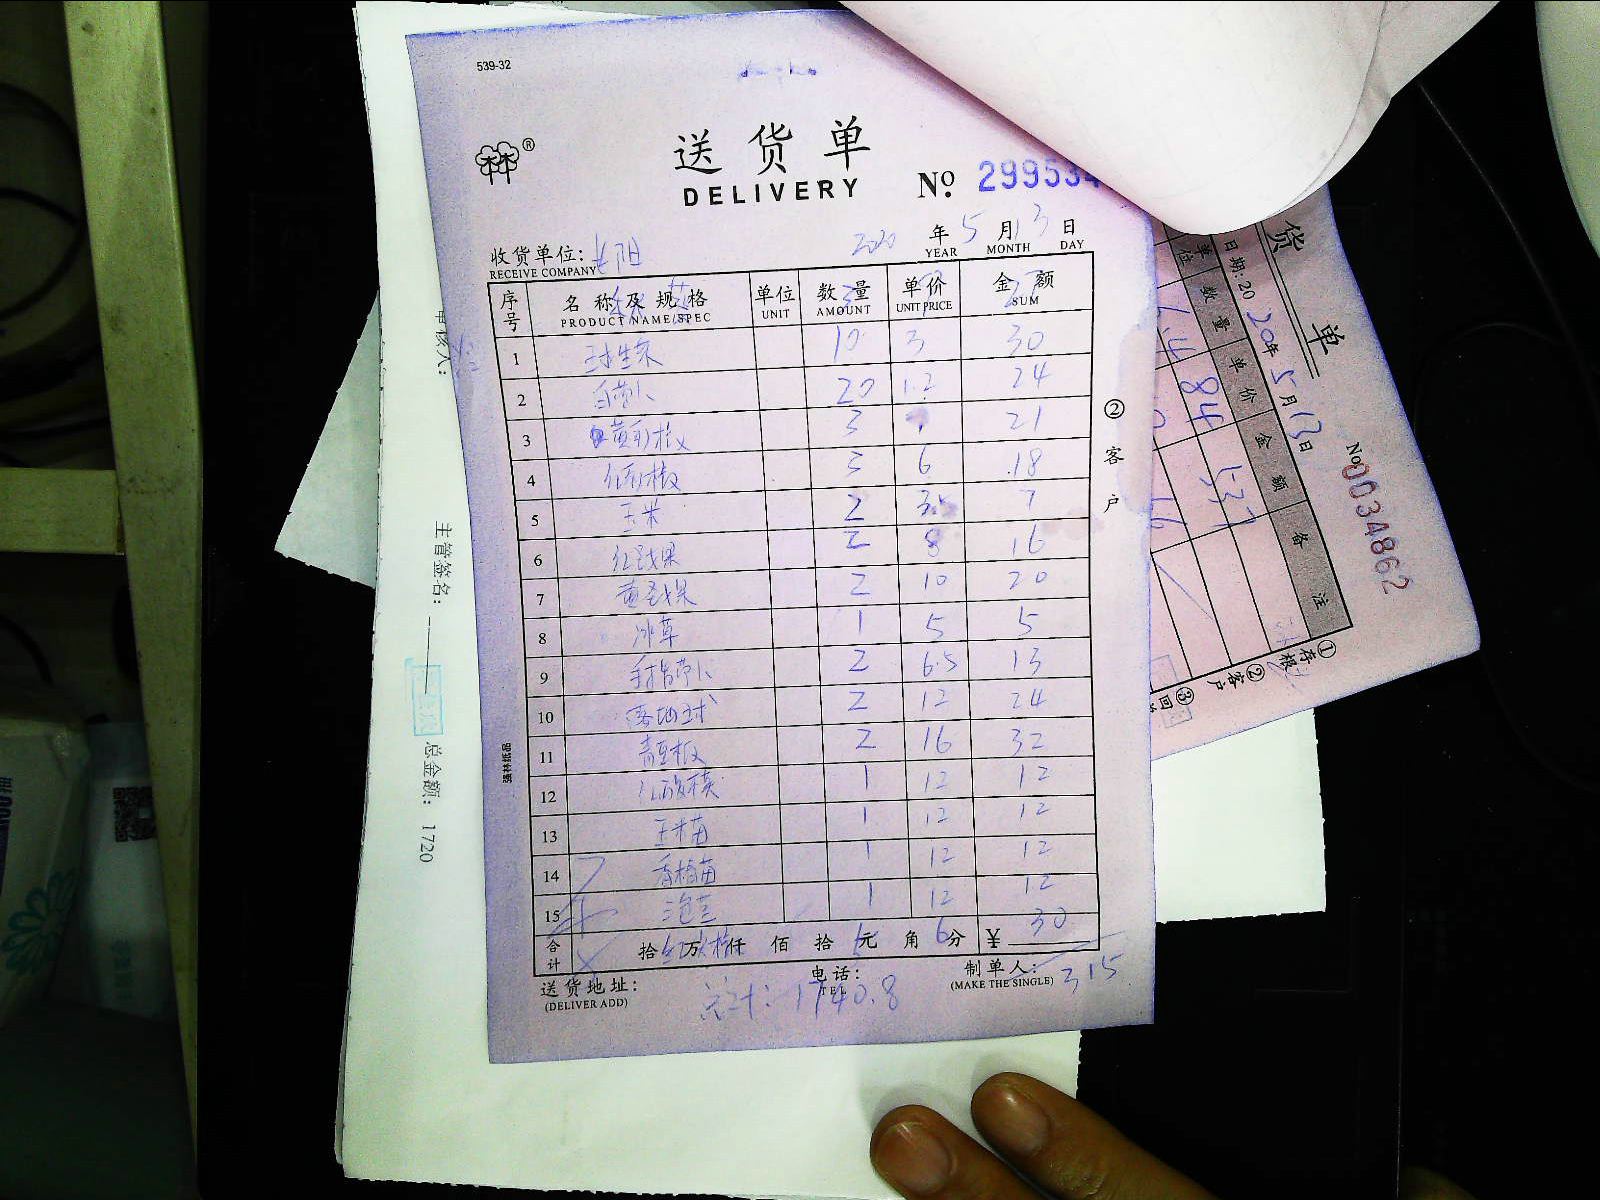 539-32
®
送货单
DELIVERY
No. 299534
收货单位:
RECEIVE COMPANY
2020 年 5 月 13 日
YEAR MONTH DAY
序号 名称及规格 单位 数量 单价 金额
PRODUCT NAME/SPEC UNIT AMOUNT UNIT PRICE SUM
1 球生菜 10 3 30
2 白萝卜 20 1.2 24
3 黄彩椒 3 7 21
4 红彩椒 3 6 18
5 玉米 2 3.5 7
6 红圣女果 2 8 16
7 黄圣女果 2 10 20
8 冰草 1 5 5
9 手指萝卜 2 6.5 13
10 2 12 24
11 2 16 32
12 1 12 12
13 玉米苗 1 12 12
14 1 12 12
15 1 12 12
合计 拾 万 仟 佰 拾 元 角 分 ¥ 30
6
送货地址:
(DELIVER ADD)
电话:
TEL
制单人:
(MAKE THE SINGLE)
315
总计: 1740.8
② 客户
强林纸品
审核人:
主管签名:
总金额: 1720
货单
日期: 2020年5月13日
No 0034862
单位 数量 单价 金额 备注
84
①存根 ②客户 ③回